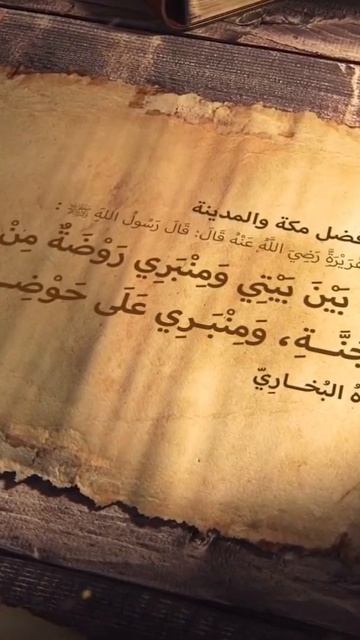 فضل مكة والمدينة
هُرَيْرَةَ رَضِيَ اللَّهُ عَنْهُ قَالَ: قَالَ رَسُولُ اللهِ ﷺ :
بَيْنَ بَيْتِي وَمِنْبَرِي رَوْضَةٌ مِنْ
جَنَّـــةِ، وَمِنْبَـرِي عَلَى حَوْضِـ
هُ البُخَـــارِيّ